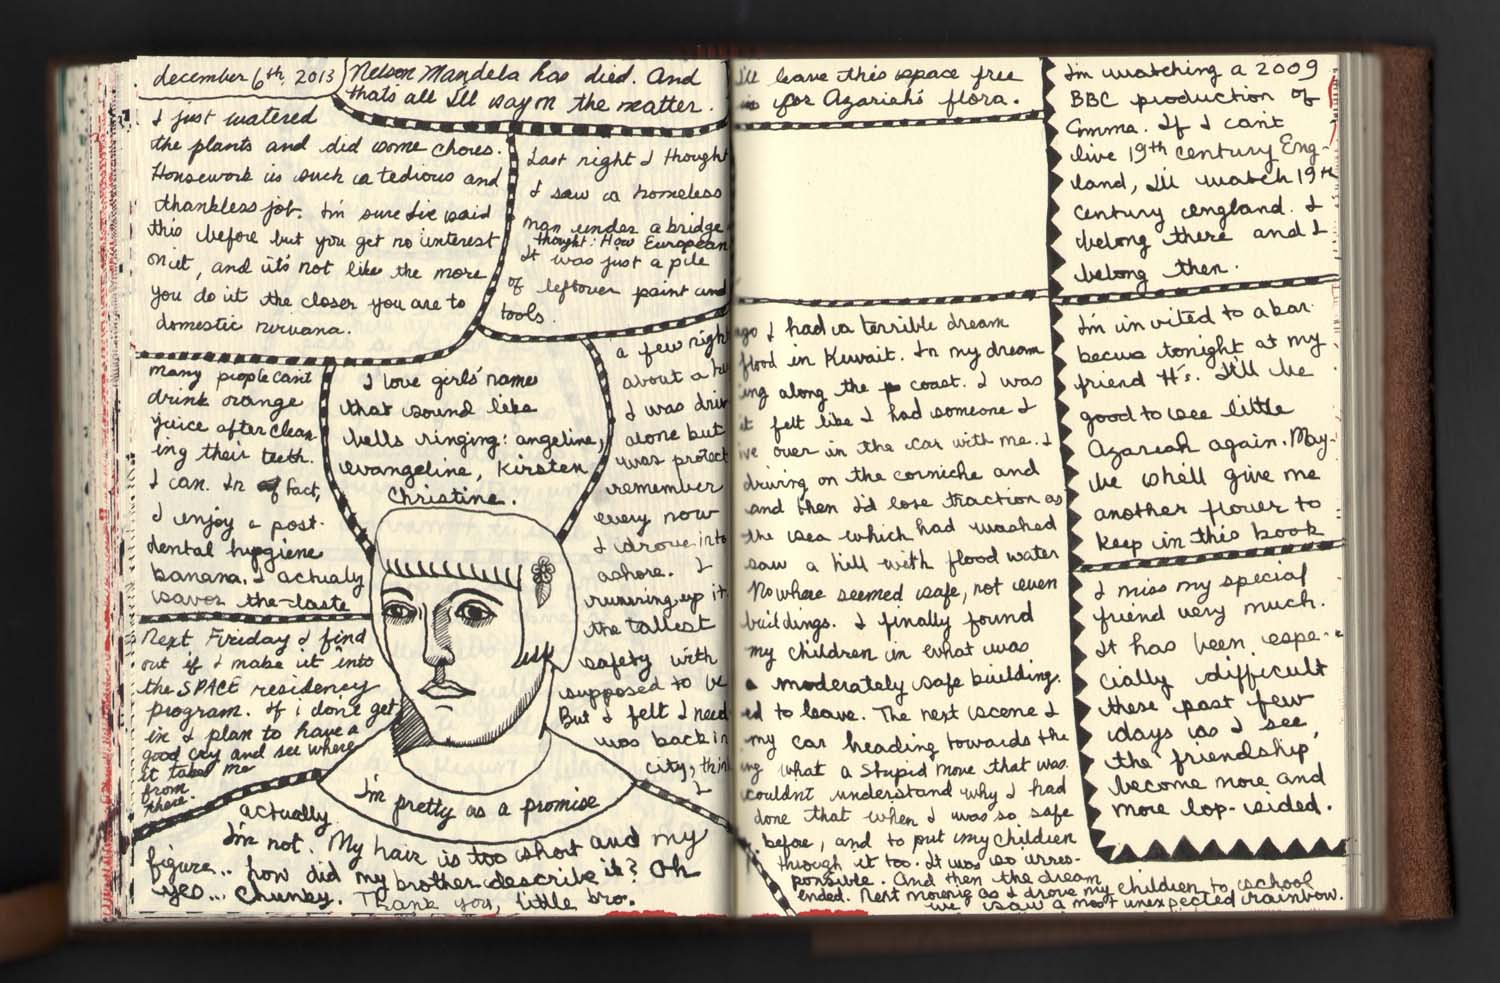 december 6th, 2013
Nelson Mandela has died. And
thats all I'll say on the matter.
I just watered
the plants and did some chores.
Housework is such a tedious and
thankless job. I'm sure I've said
this before but you get no interest
on it, and it's not like the more
you do it the closer you are to
domestic nirvana.
Last night I thought
I saw a homeless
man under a bridge
thought: How European
It was just a pile
of leftover paint and
tools.
many people can't
drink orange
juice after clean
ing their teeth.
I can. In fact,
I enjoy a post-
dental hygiene
banana. I actualy
savor the taste
I love girls' name
that sound like
bells ringing: angeline,
evangeline, Kirsten
Christine.
Next Friday I find
out if I make it into
the SPACE residency
program. If i don't get
in I plan to have a
good cry and see where
it takes me
from
there.
I'm pretty as a promise
actually
I'm not. My hair is too short and my
figure... how did my brother describe it? Oh
yes... Chunky. Thank you, little bro.
a few night
about a hu
I was driv
alone but
was protect
remember
every now
I drove into
ashore. I
running up it.
the tallest
safety with
supposed to be
But I felt I need
was back in
city, think
I
I'll leave this space free
for Azariah's flora.
ago I had a terrible dream
flood in Kuwait. In my dream
ing along the coast. I was
it felt like I had someone I
ive over in the car with me. I
driving on the corniche and
and then I'd lose traction as
the sea which had washed
saw a hill with flood water
Nowhere seemed safe, not even
buildings. I finally found
my children in what was
a moderately safe building.
ed to leave. The next scene I
my car heading towards the
ing what a stupid move that was.
couldnt understand why I had
done that when I was so safe
before, and to put my children
through it too. It was so irres-
ponsible. And then the dream
ended. Next mornig as I drove my children to school
we saw a most unexpected rainbow.
I'm watching a 2009
BBC production of
Emma. If I can't
live 19th century Eng-
land, I'll watch 19th
century england. I
belong there and I
belong then.
I'm invited to a bar-
becue tonight at my
friend H's. It'll be
good to see little
Azariah again. May-
be she'll give me
another flower to
keep in this book
I miss my special
friend very much.
It has been espe-
cially difficult
these past few
days as I see
the friendship,
become more and
more lop-sided.